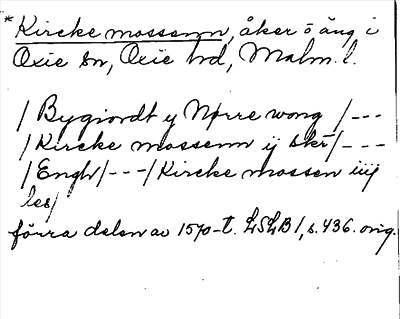 * Kircke mossenn, åker o äng i
Oxie sn, Oxie hd, Malm. l.
/ Bygiordt y Nørre wong /---
/ Kircke mossenn ij skr/---
/ Engh/---/ Kircke mossen iiij
les/
förra delen av 1570-t. LSLB 1, s. 436. orig.